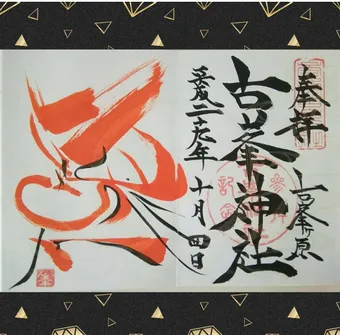 奉拝 古峯ヶ原
古峯神社
平成二十九年十月四日